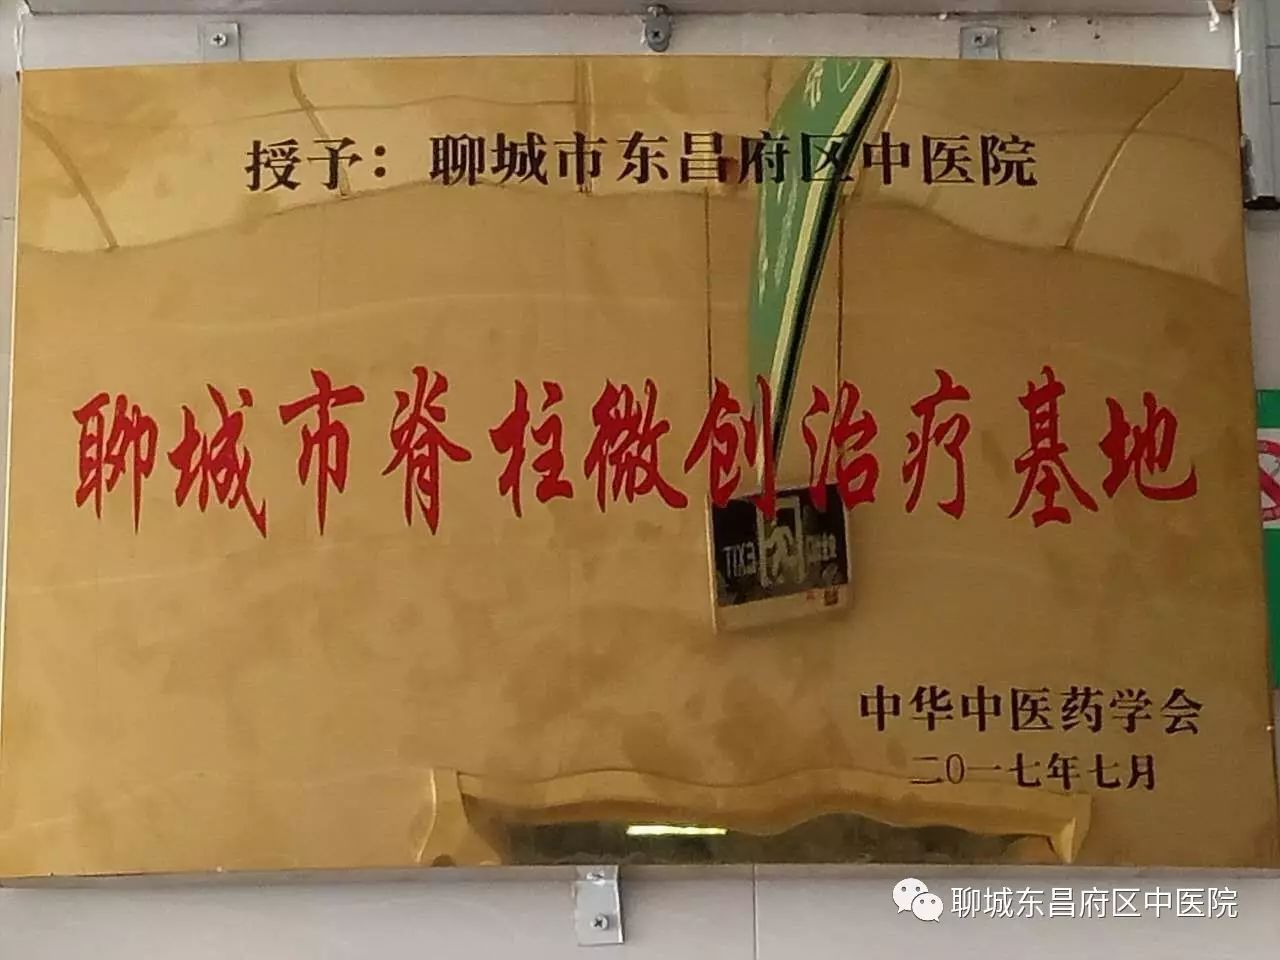 授予：聊城市东昌府区中医院
聊城市脊柱微创治疗基地
EXIT
中华中医药学会
二〇一七年七月
聊城东昌府区中医院